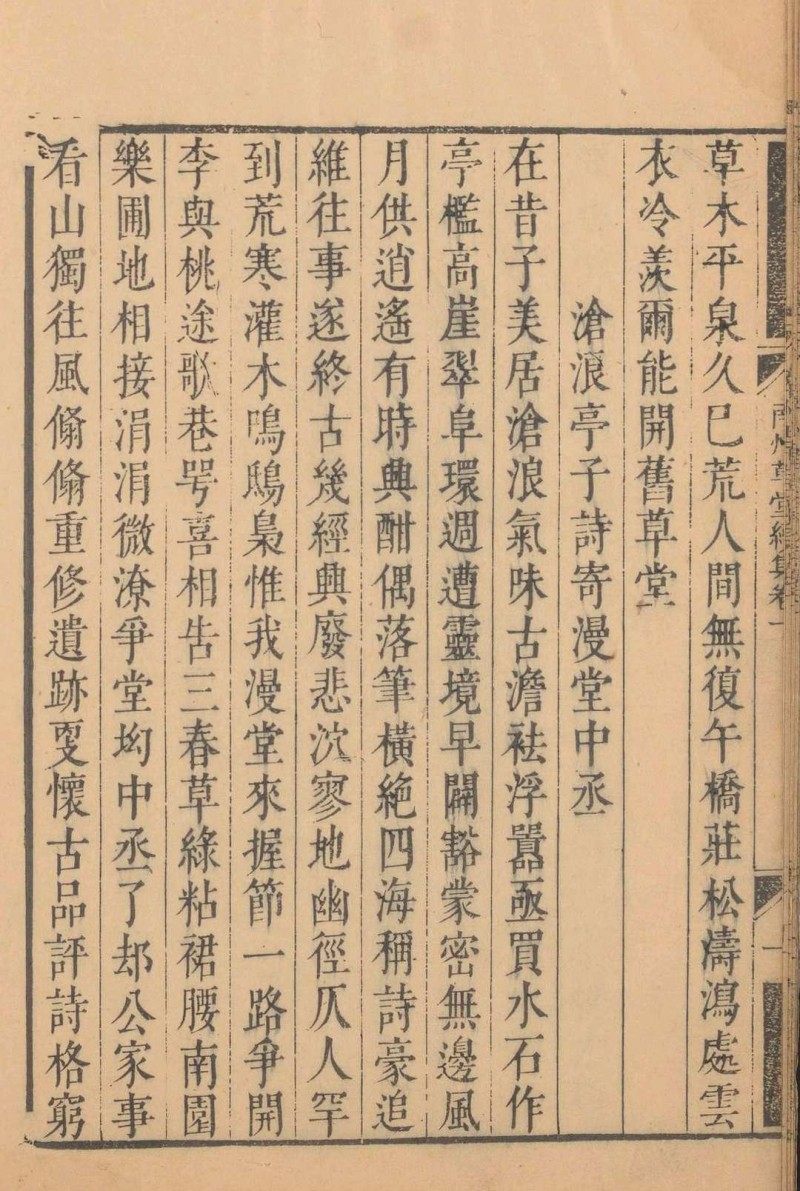 草木平泉久已荒人間無復午橋莊松濤瀉處雲
衣冷羨爾能開舊草堂
滄浪亭子詩寄漫堂中丞
在昔子美居滄浪氣味古澹袪浮囂亟買水石作
亭檻高崖翠阜環週遭靈境早闢豁蒙密無邊風
月供逍遙有時興酣偶落筆橫絶四海稱詩豪追
維往事遂終古幾經興廢悲泬寥地幽徑仄人罕
到荒寒灌木鳴鴟梟惟我漫堂來握節一路爭開
李與桃途歌巷咢喜相告三春草綠粘裙腰南園
樂圃地相接涓涓微潦爭堂坳中丞了却公家事
看山獨往風翛翛重修遺跡更懷古品評詩格窮
草堂續集卷一
一